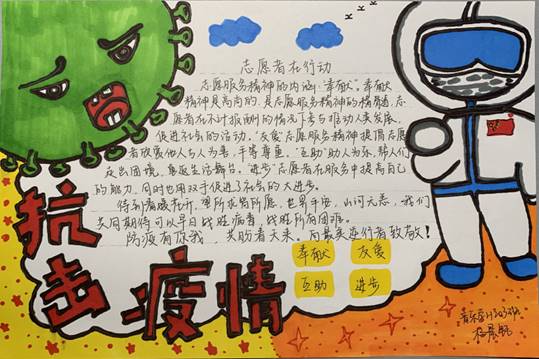 志愿者在行动
志愿服务精神的内涵:“奉献”。奉献
精神是高尚的,是志愿服务精神的精髓,志
愿者在不计报酬的情况下参与推动人类发展、
促进社会的活动。“友爱”志愿服务精神提倡志愿
者欣赏他人与人为善,平等尊重。“互助”助人为乐,帮人们
走出困境,重返生活舞台。“进步”志愿者在服务中提高自己
的能力,同时也用双手促进了社会的大进步。
待到春暖花开,
世界平安,山河无恙,我们
共同期待可以早日战胜病毒,战胜所有困难。
防疫有你我,共盼春天来。向最美逆行者致敬!
抗击疫情
奉献 友爱
互助 进步